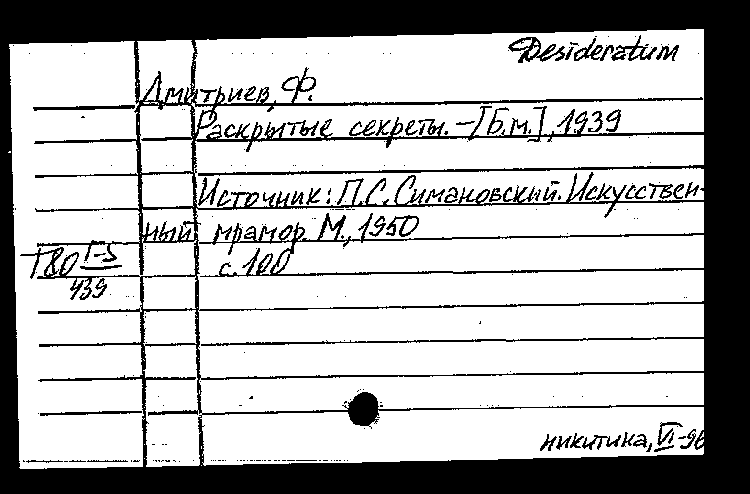 Desideratum
Дмитриев, Ф.
Раскрытые секреты. – [Б.м.], 1939
Источник: П.С. Симановский. Искусствен-
ный мрамор. М., 1950
с. 100
Г-5
439
никитина, VI-96